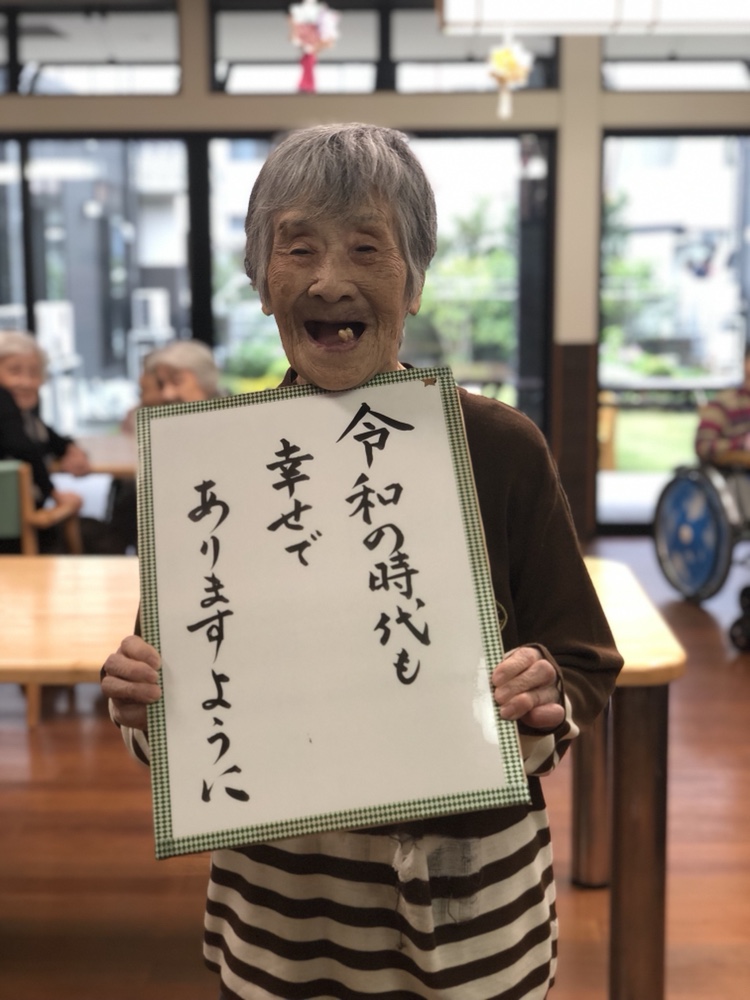 令和の時代も
幸せで
ありますように